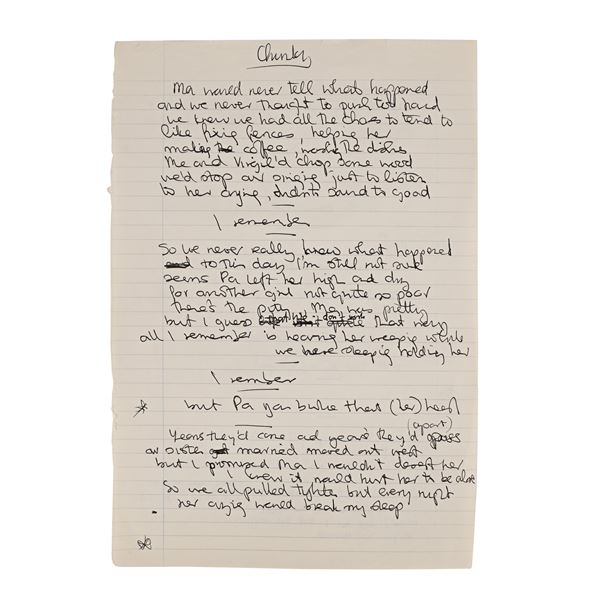 Chunky
Ma would never tell what happened
and we never thought to push too hard
we knew we had all the chores to tend to
like fixing fences, helping her
making the coffee, washing the dishes
Me and Virgil'd chop some wood
we'd stop our singing just to listen
to her crying, didn't sound to good
I remember
So we never really knew what happened
and to this day I'm still not sure
seems Pa left her high and dry
for another girl not quite so poor
there's the pity Ma was pretty
but I guess that that way
all I remember is hearing her weeping while
we were sleeping holding her
I remember
* but Pa you broke that (her) heart
(apart)
Years they'd come and years they'd pass
our sister got married moved out west
but I promised Ma I wouldn't desert her
I knew it would hurt her to be alone
So we all pulled tighter but every night
her crying would break my sleep
*